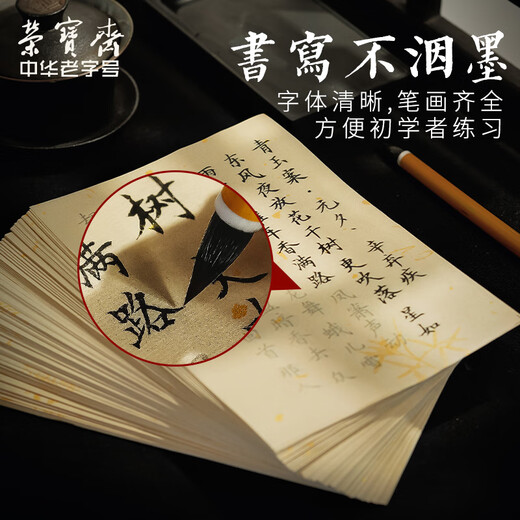 榮寶齋
中华老字号
書寫不洇墨
字体清晰,笔画齐全
方便初学者练习
青玉案·元夕·辛弃疾
东风夜放花千树更吹落星如
雨
香满路凤箫声动
树
满路